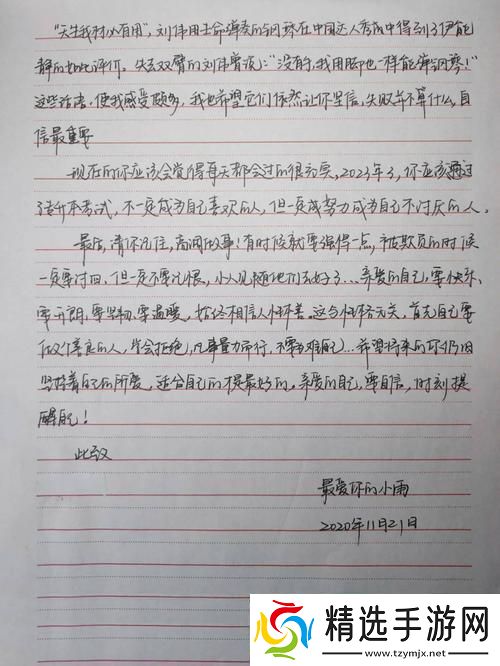 “天生我材必有用”，刘伟用生命弹奏的钢琴在中国达人秀中得到了伊能
静的如此评价。失去双臂的刘伟曾说：“没有手，我用脚也一样能弹钢琴！”
这些话语，使我感受颇多，我也希望它们依然让你坚信，失败并不算什么，自
信最重要
现在的你应该会觉得每天都会过的很充实，2023年了，你应该通过
专升本考试，不一定成为自己喜欢的人，但一定成努力成为自己不讨厌的人。
最后，请你记住，高调做事！有时候就要强得一点，被欺负的时候
一定要讨回，但一定不要记恨，小人见随他们去好了…亲爱的自己，要快乐、
要开朗、要坚韧、要温暖，始终相信人性本善。这与性格无关，首先自己要
做个善良的人，学会拒绝，凡事量力而行，不要为难自己…希望将来的你仍旧
坚持着自己的所爱，适合自己的
是最好的。亲爱的自己，要自信，时刻提
醒自己！
此致
最爱你的小雨
2020年11月21日
精选手游网
www.tzymjx.net.net